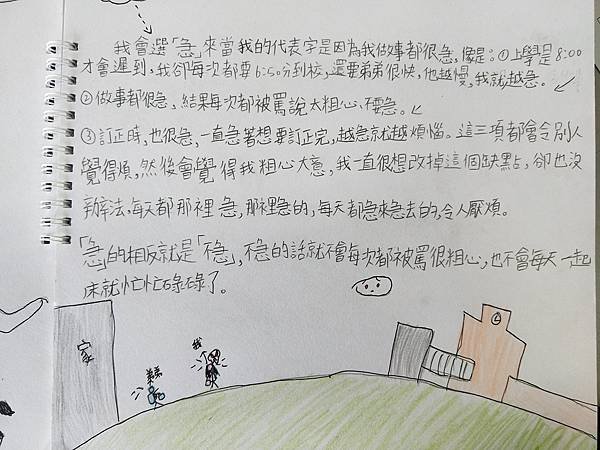 我會選「急」來當我的代表字是因為我做事都很急，像是：①上學是8:00
才會遲到，我卻每次都要6:50分到校，還要弟弟很快，他越慢，我就越急。
②做事都很急，結果每次都被罵說太粗心、不要急。
③訂正時，也很急，一直急著想要訂正完，越急就越煩惱。這三項都會令別人
覺得煩，然後會覺得我粗心大意，我一直很想改掉這個缺點，卻也沒
辦法，每天都那裡急，那裡急的，每天都急來急去的，令人厭煩。
「急」的相反就是「不急」，不急的話就不會每次都被罵很粗心，也不會每天一起
床就忙忙碌碌了。
家
弟弟
我